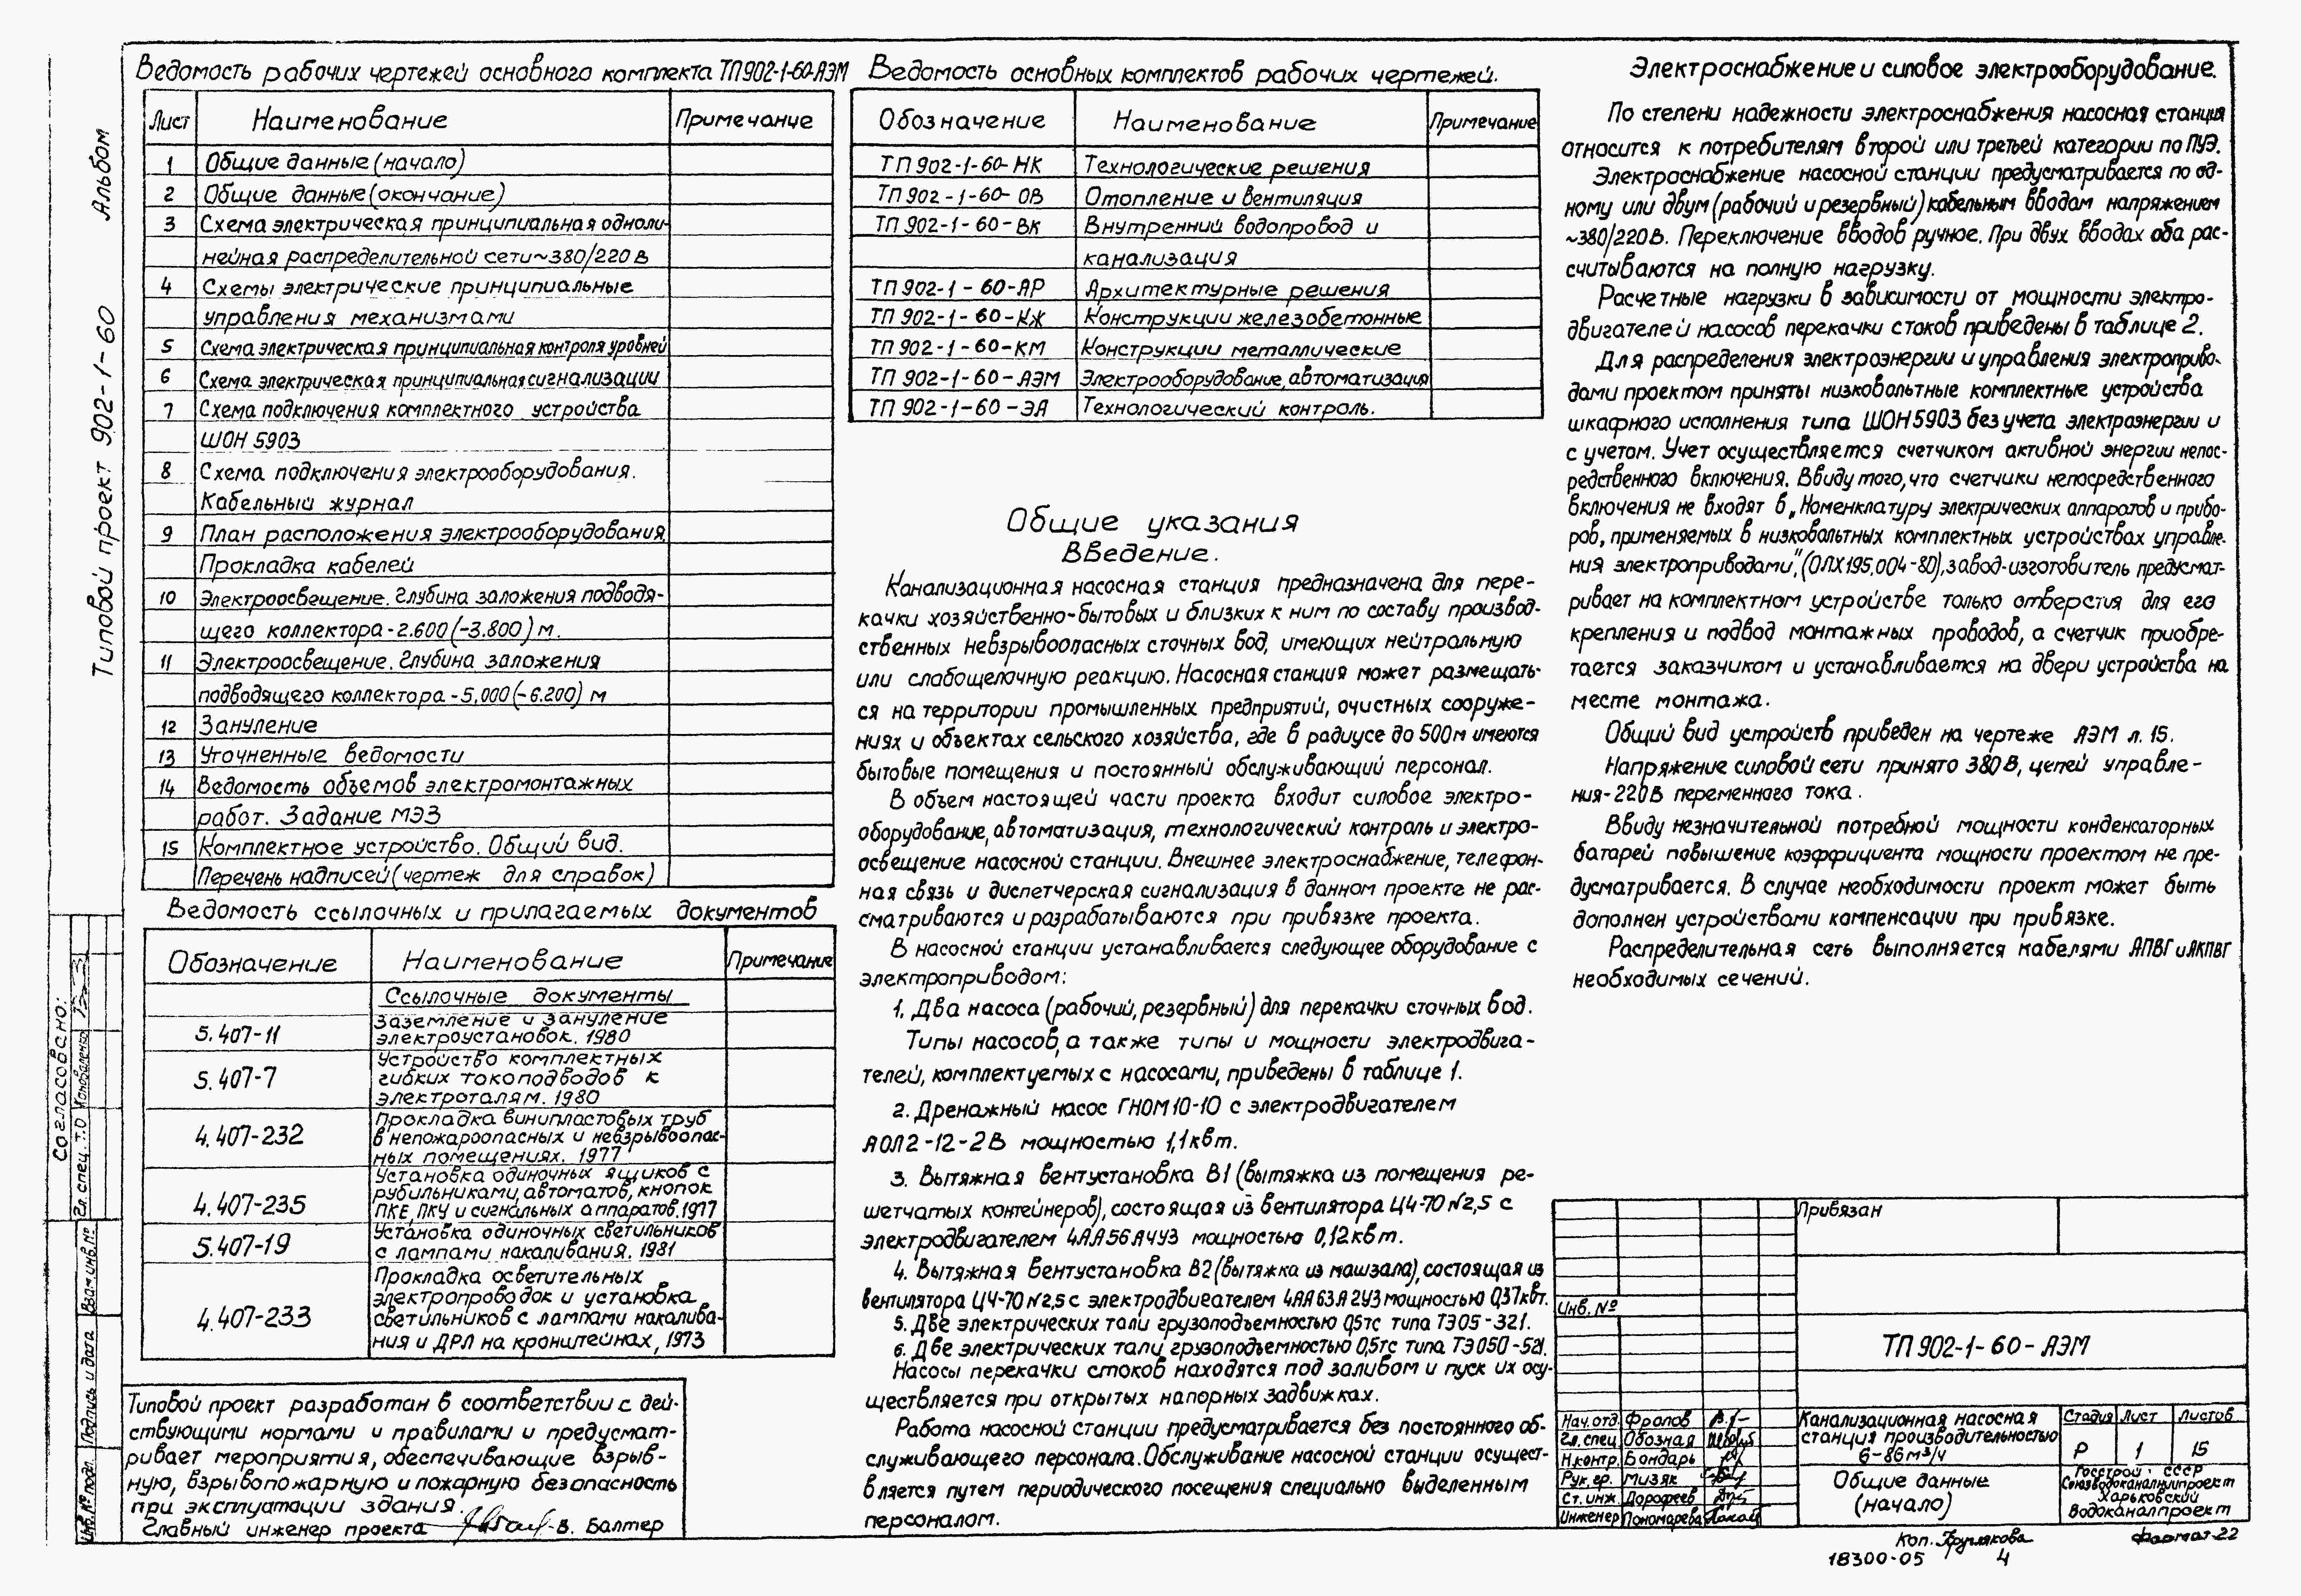 Типовой проект 902-1-60 Альбом
Ведомость рабочих чертежей основного комплекта ТП902-1-60-АЭМ
Лист Наименование Примечание
1 Общие данные (начало)
2 Общие данные (окончание)
3 Схема электрическая принципиальная одноли-
нейная распределительной сети ~380/220 В
4 Схемы электрические принципиальные
управления механизмами
5 Схема электрическая принципиальная контроля уровней
6 Схема электрическая принципиальная сигнализации
7 Схема подключения комплектного устройства
ШОН 5903
8 Схема подключения электрооборудования.
Кабельный журнал
9 План расположения электрооборудования.
Прокладка кабелей
10 Электроосвещение. Глубина заложения подводя-
щего коллектора -2.600 (-3.800) м.
11 Электроосвещение. Глубина заложения
подводящего коллектора -5,000 (-6.200) м
12 Зануление
13 Уточненные ведомости
14 Ведомость объемов электромонтажных
работ. Задание МЭЗ
15 Комплектное устройство. Общий вид.
Перечень надписей (чертеж для справок)
Ведомость ссылочных и прилагаемых документов
Обозначение Наименование Примечание
Ссылочные документы
5.407-11 Заземление и зануление
электроустановок. 1980
5.407-7 Устройство комплектных
гибких токоподводов к
электроталям. 1980
4.407-232 Прокладка винипластовых труб
в непожароопасных и невзрывоопас-
ных помещениях. 1977
4.407-235 Установка одиночных ящиков с
рубильниками, автоматов, кнопок
ПКЕ, ПКУ и сигнальных аппаратов. 1977
5.407-19 Установка одиночных светильников
с лампами накаливания. 1981
4.407-233 Прокладка осветительных
электропроводок и установка
светильников с лампами накалива-
ния и ДРЛ на кронштейнах, 1973
Типовой проект разработан в соответствии с дей-
ствующими нормами и правилами и предусмат-
ривает мероприятия, обеспечивающие взрыв-
ную, взрывопожарную и пожарную безопасность
при эксплуатации здания.
Главный инженер проекта В. Балтер
Ведомость основных комплектов рабочих чертежей.
Обозначение Наименование Примечание
ТП 902-1-60-НК Технологические решения
ТП 902-1-60-ОВ Отопление и вентиляция
ТП 902-1-60-ВК Внутренний водопровод и
канализация
ТП 902-1-60-АР Архитектурные решения
ТП 902-1-60-КЖ Конструкции железобетонные
ТП 902-1-60-КМ Конструкции металлические
ТП 902-1-60-АЭМ Электрооборудование, автоматизация
ТП 902-1-60-ЭА Технологический контроль.
Общие указания
Введение.
Канализационная насосная станция предназначена для пере-
качки хозяйственно-бытовых и близких к ним по составу производ-
ственных невзрывоопасных сточных вод, имеющих нейтральную
или слабощелочную реакцию. Насосная станция может размещать-
ся на территории промышленных предприятий, очистных сооруже-
ниях и объектах сельского хозяйства, где в радиусе до 500м имеются
бытовые помещения и постоянный обслуживающий персонал.
В объем настоящей части проекта входит силовое электро-
оборудование, автоматизация, технологический контроль и электро-
освещение насосной станции. Внешнее электроснабжение, телефон-
ная связь и диспетчерская сигнализация в данном проекте не рас-
сматриваются и разрабатываются при привязке проекта.
В насосной станции устанавливается следующее оборудование с
электроприводом:
1. Два насоса (рабочий, резервный) для перекачки сточных вод.
Типы насосов, а также типы и мощности электродвига-
телей, комплектуемых с насосами, приведены в таблице 1.
2. Дренажный насос ГНОМ 10-10 с электродвигателем
АОЛ2-12-2В мощностью 1,1квт.
3. Вытяжная вентустановка В1 (вытяжка из помещения ре-
шетчатых контейнеров), состоящая из вентилятора Ц4-70 №2,5 с
электродвигателем 4АА56А4У3 мощностью 0,12квт.
4. Вытяжная вентустановка В2 (вытяжка из машзала), состоящая из
вентилятора Ц4-70 №2,5 с электродвигателем 4АА63А2У3 мощностью 0,37квт.
5. Две электрических тали грузоподъемностью 0,5тс типа ТЭ05-321.
6. Две электрических тали грузоподъемностью 0,5тс типа ТЭ050-521.
Насосы перекачки стоков находятся под заливом и пуск их осу-
ществляется при открытых напорных задвижках.
Работа насосной станции предусматривается без постоянного об-
служивающего персонала. Обслуживание насосной станции осущест-
вляется путем периодического посещения специально выделенным
персоналом.
Электроснабжение и силовое электрооборудование.
По степени надежности электроснабжения насосная станция
относится к потребителям второй или третьей категории по ПУЭ.
Электроснабжение насосной станции предусматривается по од-
ному или двум (рабочий и резервный) кабельным вводам напряжением
~380/220В. Переключение вводов ручное. При двух вводах оба рас-
считываются на полную нагрузку.
Расчетные нагрузки в зависимости от мощности электро-
двигателей насосов перекачки стоков приведены в таблице 2.
Для распределения электроэнергии и управления электроприво-
дами проектом приняты низковольтные комплектные устройства
шкафного исполнения типа ШОН 5903 без учета электроэнергии и
с учетом. Учет осуществляется счетчиком активной энергии непос-
редственного включения. Ввиду того, что счетчики непосредственного
включения не входят в „Номенклатуру электрических аппаратов и прибо-
ров, применяемых в низковольтных комплектных устройствах управле-
ния электроприводами", (ОЛХ195.004-80), завод-изготовитель предусмат-
ривает на комплектном устройстве только отверстия для его
крепления и подвод монтажных проводов, а счетчик приобре-
тается заказчиком и устанавливается на двери устройства на
месте монтажа.
Общий вид устройств приведен на чертеже АЭМ л. 15.
Напряжение силовой сети принято 380В, цепей управле-
ния - 220В переменного тока.
Ввиду незначительной потребной мощности конденсаторных
батарей повышение коэффициента мощности проектом не пре-
дусматривается. В случае необходимости проект может быть
дополнен устройствами компенсации при привязке.
Распределительная сеть выполняется кабелями АПВГ и АКПВГ
необходимых сечений.
Согласовано:
Гл. спец. Т.О Коноваленко
Взам инв. №
Подпись и дата
Инв. № подл.
Привязан
Инв. №
ТП 902-1-60-АЭМ
Нач. отд. Фролов
Гл. спец Обозная
Н.контр. Бондарь
Рук. гр. Мизяк
Ст. инж. Дорофеев
Инженер Пономарева
Канализационная насосная
станция производительностью
6-86м³/ч
Стадия Лист Листов
Р 1 15
Общие данные
(начало)
Госстрой СССР
Союзводоканалниипроект
Харьковский
Водоканалпроект
Коп. Круглякова Формат 22
18300-05 4